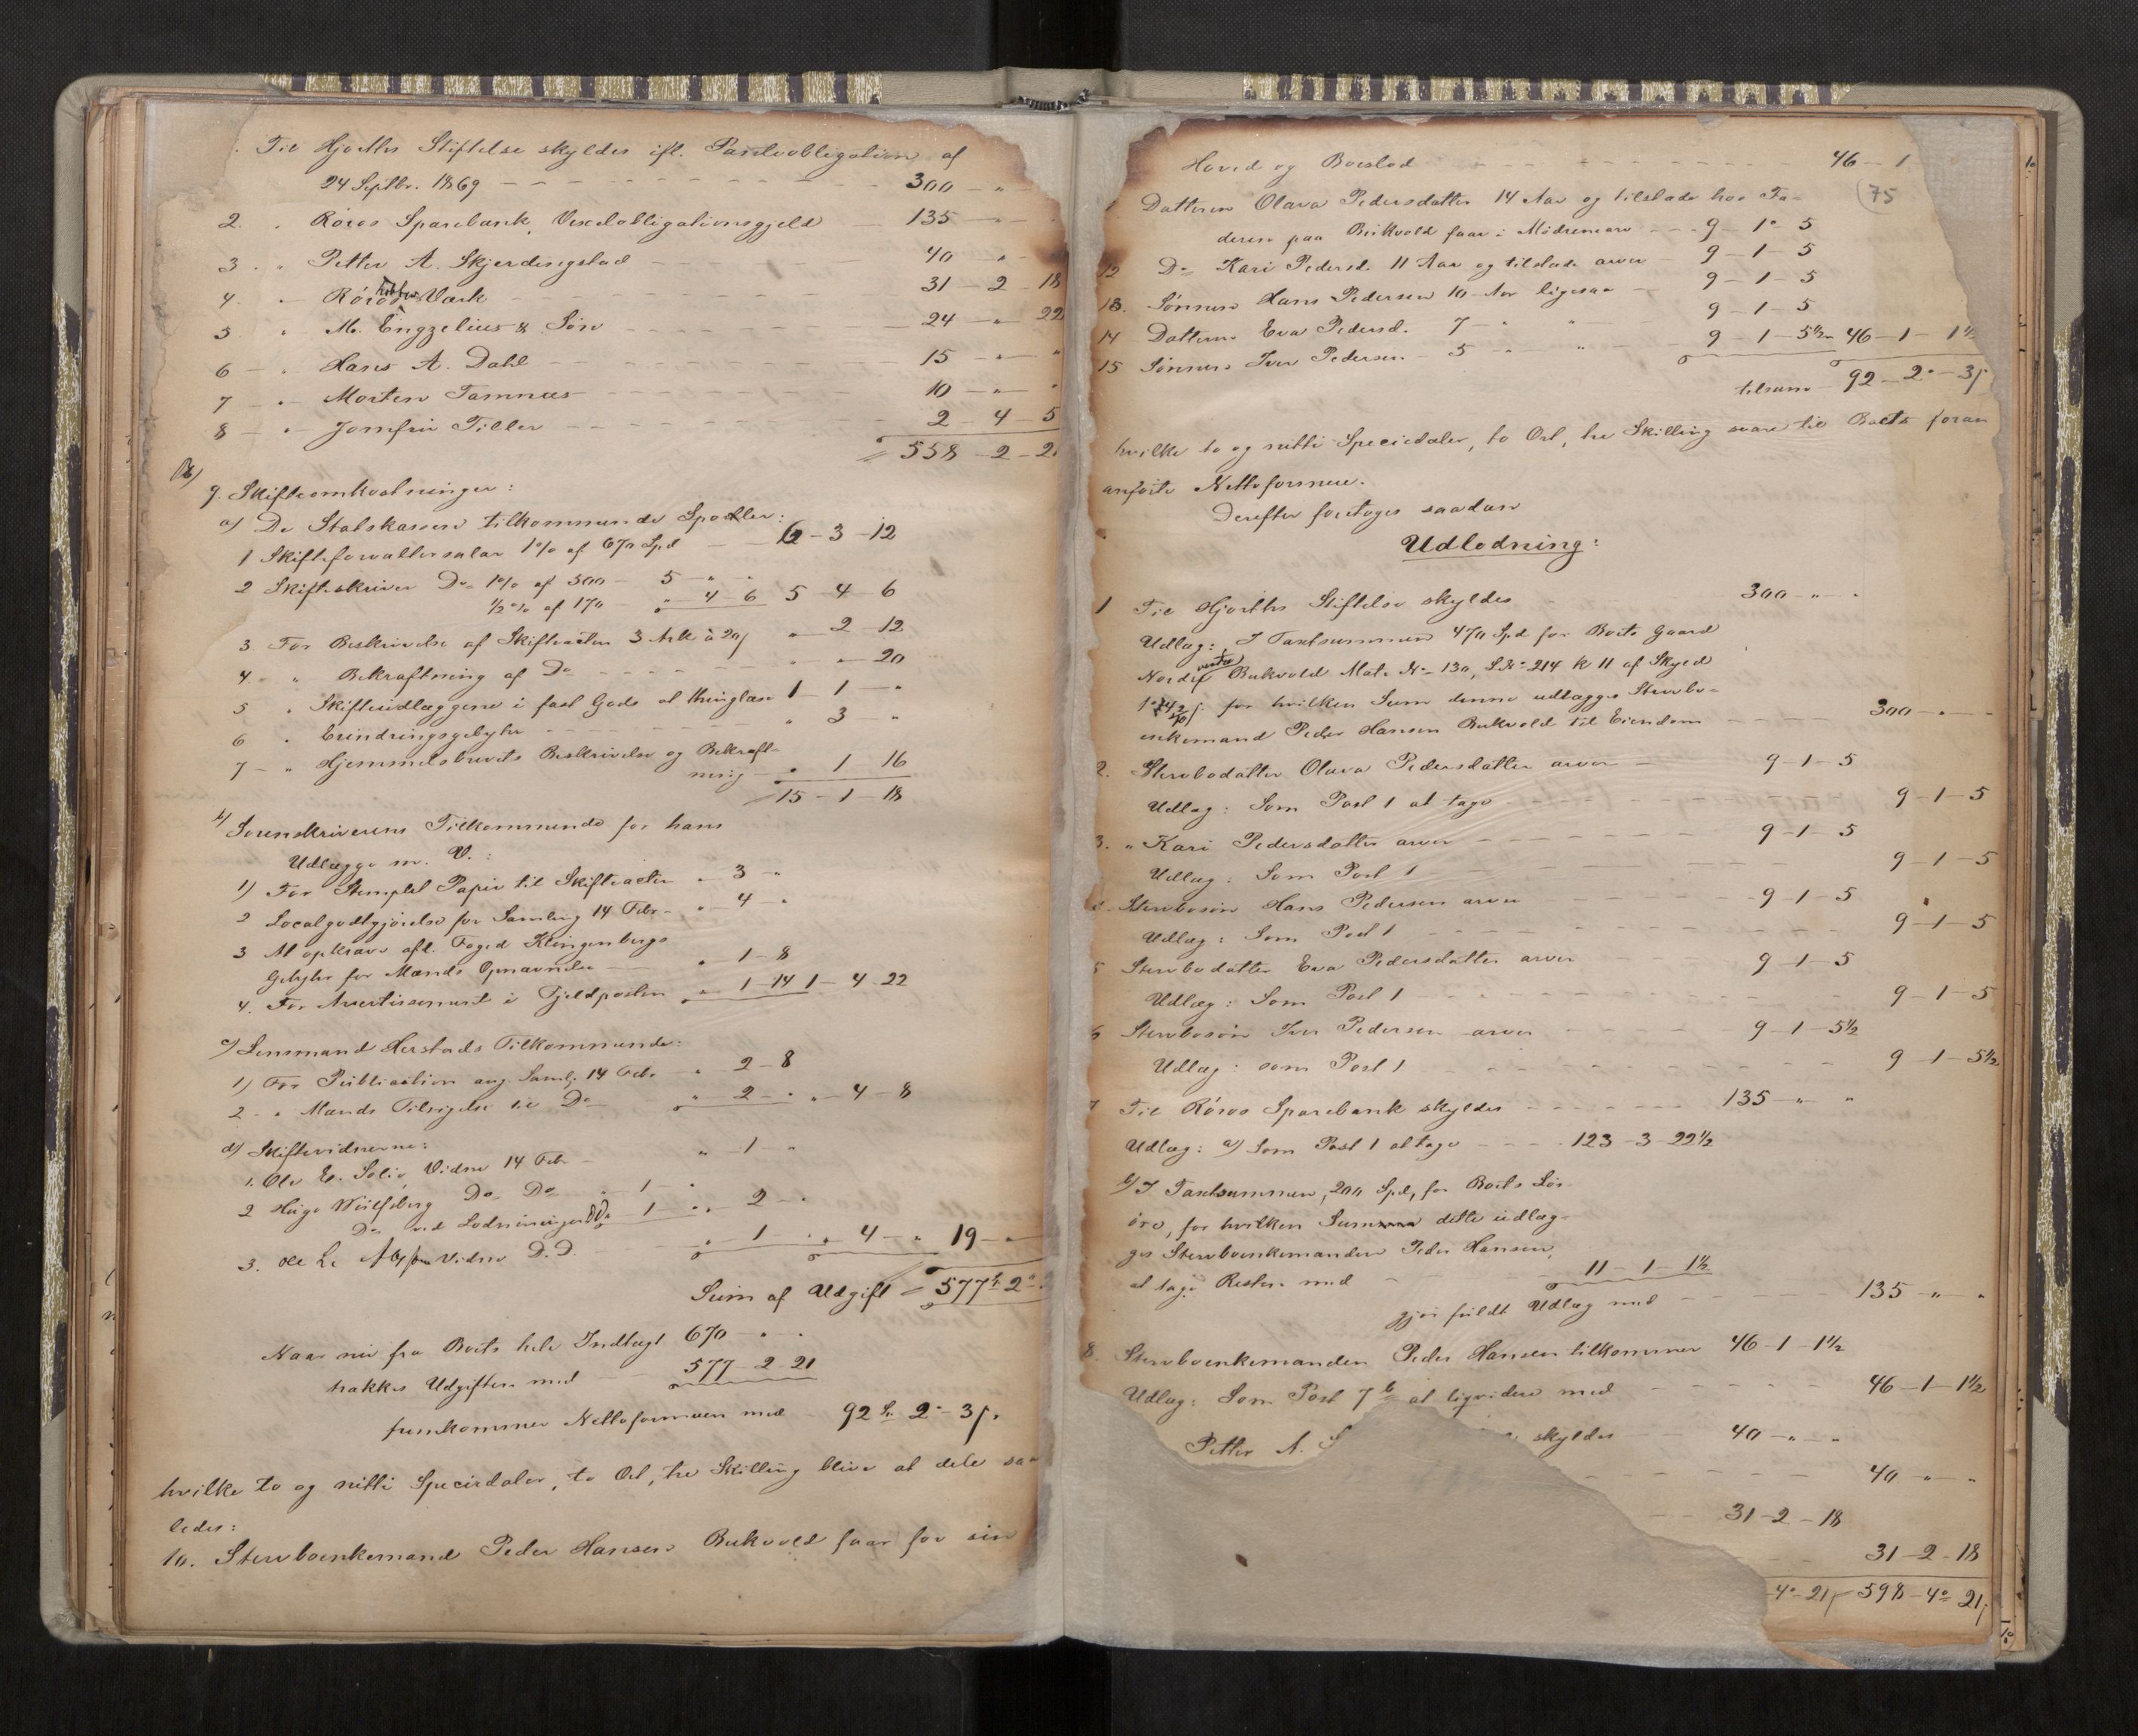 Til Hjorths Stiftelse skyldes ifl. Pantobligation af
24 Septbr. 1869 300 - "
2. " Røros Sparebank, Vexelobligationsgjeld 135 -
3. " Petter A. Skjerdingstad 40 - "
4. " Røros Kobber Værk 31 - 2 - 18
5 " M. Engzelius & Søn 24 - " 22
6 - " Hans A. Dahl 15 - " - "
7 - " Morten Tamnes 10 - " - "
8 - " Jomfru Tiller 2 - 4 - 5
558 - 2 - 2
9. Skifteomkostninger:
a) De Statskassen tilkommende Sportler:
1 Skifteforvaltersalar 1% af 670 Spd 6 - 3 - 12
2 Skifteskriver Do 1% af 500 - 5 - " "
½% af 170 " 4 - 6 5 - 4 - 6
3. For Beskrivelse af Skifteacten 3 Ark à 20 " - 2 - 12
4. - " Bekræftning af Do " - " - 20
5 " Skifteudlæggene i fast Gods at thinglæse 1 - 1 - "
6 " Erindringsgebyhr " 3 - "
7 - " Hjemmelsbrevets Beskrivelse og Bekræft-
ning " 1 - 16
15 - 1 - 18
b) Sorenskriverens Tilkommende for hans
Udlægge m. V.:
1) For Stemplet Papir til Skifteacten " 3 - "
2 Localgodtgjørelse for Samling 14 Febr. - " - 4 - "
3 At opkræve afd. Foged Klingenbergs
Gebyhr for Mænds Opnævnelse " 1 - 8
4. For Avertissement i Fjeldposten " 1 - 14 1 - 4 - 22
c) Lensmand Herstads Tilkommende:
1) For Publication ang. Samlg. 14 Febr " 2 - 8
2 - " Mænds Tilsigelse til Do " 2 - " " 4 - 8
d) Skiftevidnerne:
1. Ole E. Solie, Vidne 14 Feb. " 1 - "
2 Hugo Wulfsberg Do Do " 1 - "
Do ved Lodningen 1 - " " 2 - "
3. Ole L. Vidne D.D. " 1 - " " 4 - " 19 - "
Sum af Udgift = 577 2
Naar nu fra Boets hele Indtægt 670 - " - "
trækkes Udgiften med 577 - 2 - 21
fremkommer Nettoformuen med 92 2 - 3
hvilke to og nitti Speciedaler, to Ort, tre Skilling blive at dele saa
ledes:
10. Stervboenkemand Peder Hansen Bukvold faar for sin
Hoved og Boeslod 46 - 1
75
Datteren Olava Pedersdatter 14 Aar og tilstede hos Fa-
deren paa Bukvold faar i Mødrenearv 9 - 1 - 5
12 Do Kari Pedersd. 11 Aar og tilstede arver 9 - 1 - 5
13. Sønnen Hans Pedersen 10 Aar ligesaa 9 - 1 - 5
14 Datteren Eva Pedersd. 7 - " " 9 - 1 - 5
15 Sønnen Iver Pedersen 5 " " 9 - 1 - 5½ 46 - 1 - 1½
tilsam 92 - 2 - 3
hvilke to og nitti Speciedaler, to Ort, tre Skilling svare til Boets foran
anførte Nettoformue.
Derefter foretoges saadan
Udlodning:
1 Til Hjorths Stiftelse skyldes 300 - " - "
Udlæg: I Taxtsummen 470 Spd for Boets Gaard
Nordre Bukvold Mat. No 130, L.No 214 k 11 af Skyld
for hvilken Sum denne udlægges Stervbo-
enkemand Peder Hansen Bukvold til Eiendom 300 - " -
2. Stervbodatter Olava Pedersdatter arver 9 - 1 - 5
Udlæg: Som Post 1 at tage 9 - 1 - 5
3. " Kari Pedersdatter arver 9 - 1 - 5
Udlæg: Som Post 1 9 - 1 - 5
4. Stervbosøn Hans Pedersen arver 9 - 1 - 5
Udlæg: Som Post 1 9 - 1 - 5
5 Stervbodatter Eva Pedersdatter arver 9 - 1 - 5
Udlæg: Som Post 1 9 - 1 - 5
6 Stervbosøn Iver Pedersen arver 9 - 1 - 5½
Udlæg: som Post 1 9 - 1 - 5½
7 Til Røros Sparebank skyldes 135 - " "
Udlæg: a) Som Post 1 at tage 123 - 3 - 22½
b) I Taxtsummen, 200 Spd, for Boets Løs-
øre, for hvilken Sum dette udlæg-
ges Stervboenkemanden Peder Hansen,
at tage Resten med 11 - 1 - 1½
gjør fuldt Udlæg med 135 - " "
8. Stervboenkemanden Peder Hansen tilkommer 46 - 1 - 1½
Udlæg: Som Post 7 b at liqvidere med 46 - 1 - 1½
Petter A. S skyldes 40 - " - "
40 - " - "
31 - 2 - 18
31 - 2 - 18
4 - 21 598 - 4 - 21